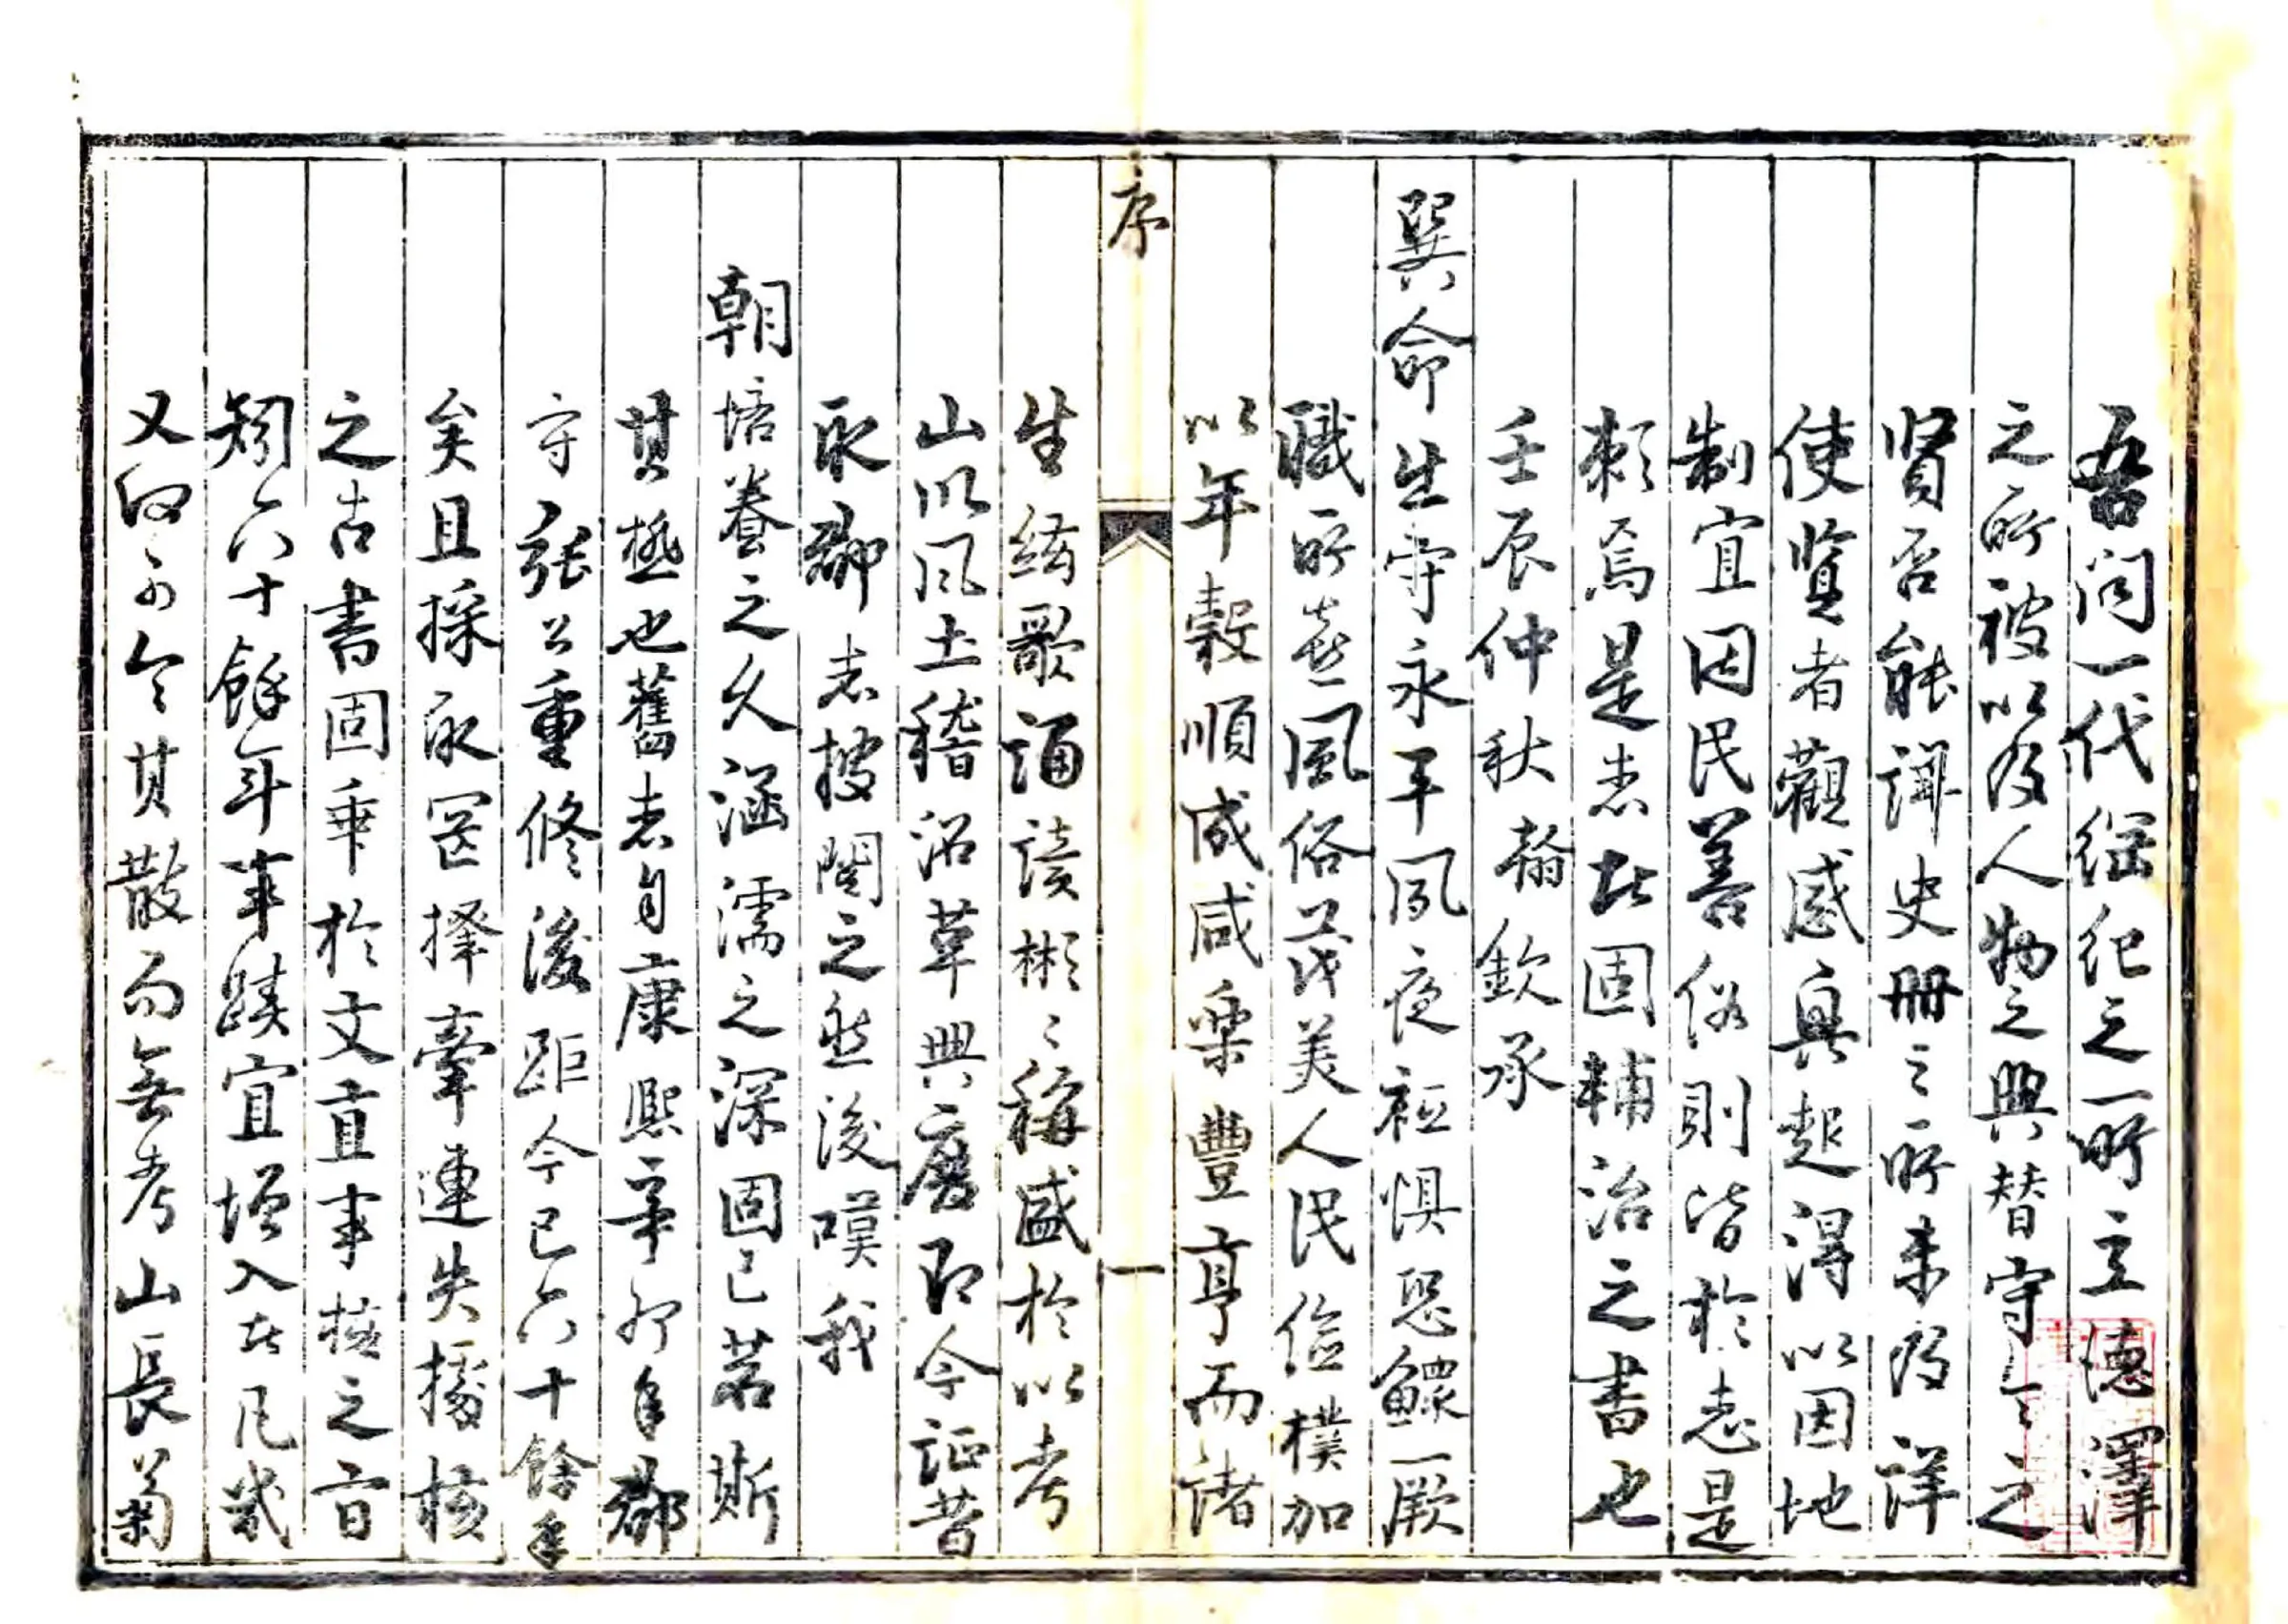 吾聞一代綱紀之所立德澤
之所被以及人物之興替守令之
賢否能譁史冊之所未及詳
使覽者觀感興起得以因地
制宜因民善俗則皆於志是
賴焉是志者固輔治之書也
壬辰仲秋翰欽承
巽命出守永平夙夜祗懼恐鰥厥
職所喜風俗茂美人民儉樸加
以年穀順成咸樂豐亨而諸
序
一
生絃歌誦讀彬彬稱盛於以考
山川風土稽沿革興廢即今証昔
取郡志披閱之然後嘆我
朝培養之久涵濡之深固已若斯
其極也舊志自康熙辛卯年郡
守張公重修後距今已六十餘年
矣且採取罔擇牽連失據核
之古書固乖於文直事核之旨
矧六十餘年事蹟宜增入者凡幾
又何可令其散而無考山長菊